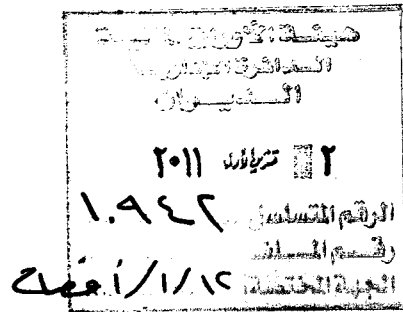 هيئة الأوراق المالية
الدائرة الإدارية
الديوان
٢ تشرين الأول ٢٠١١
الرقم المتسلسل ١٠٩٤٢
رقم الملف
الجهة المختصة ١٢/١/أفصاح